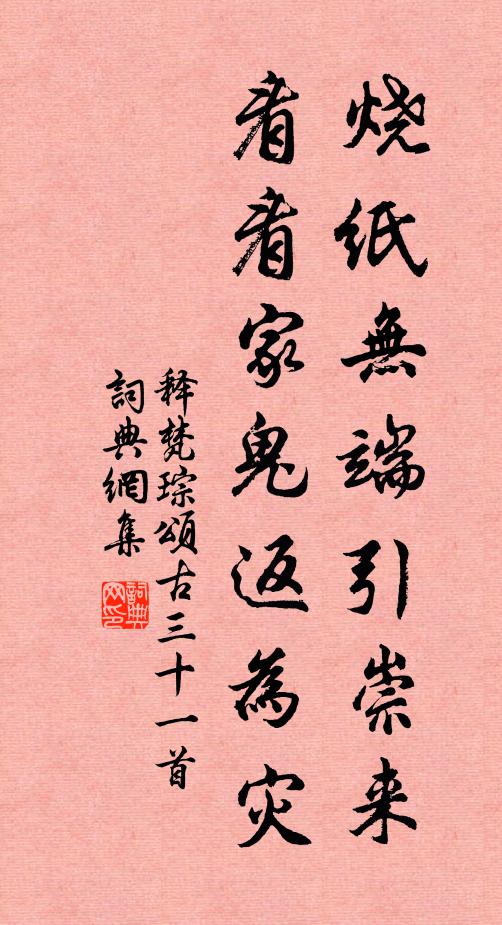 烧紙無端引崇来
看看家鬼返為灾
释梵琮頌古三十一首
詞典網集
詞典
网印